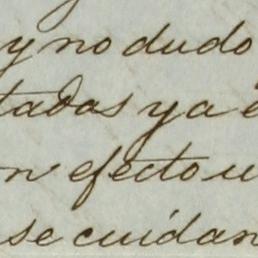 y no dudo
tadas ya e
n efecto u
se cuidan